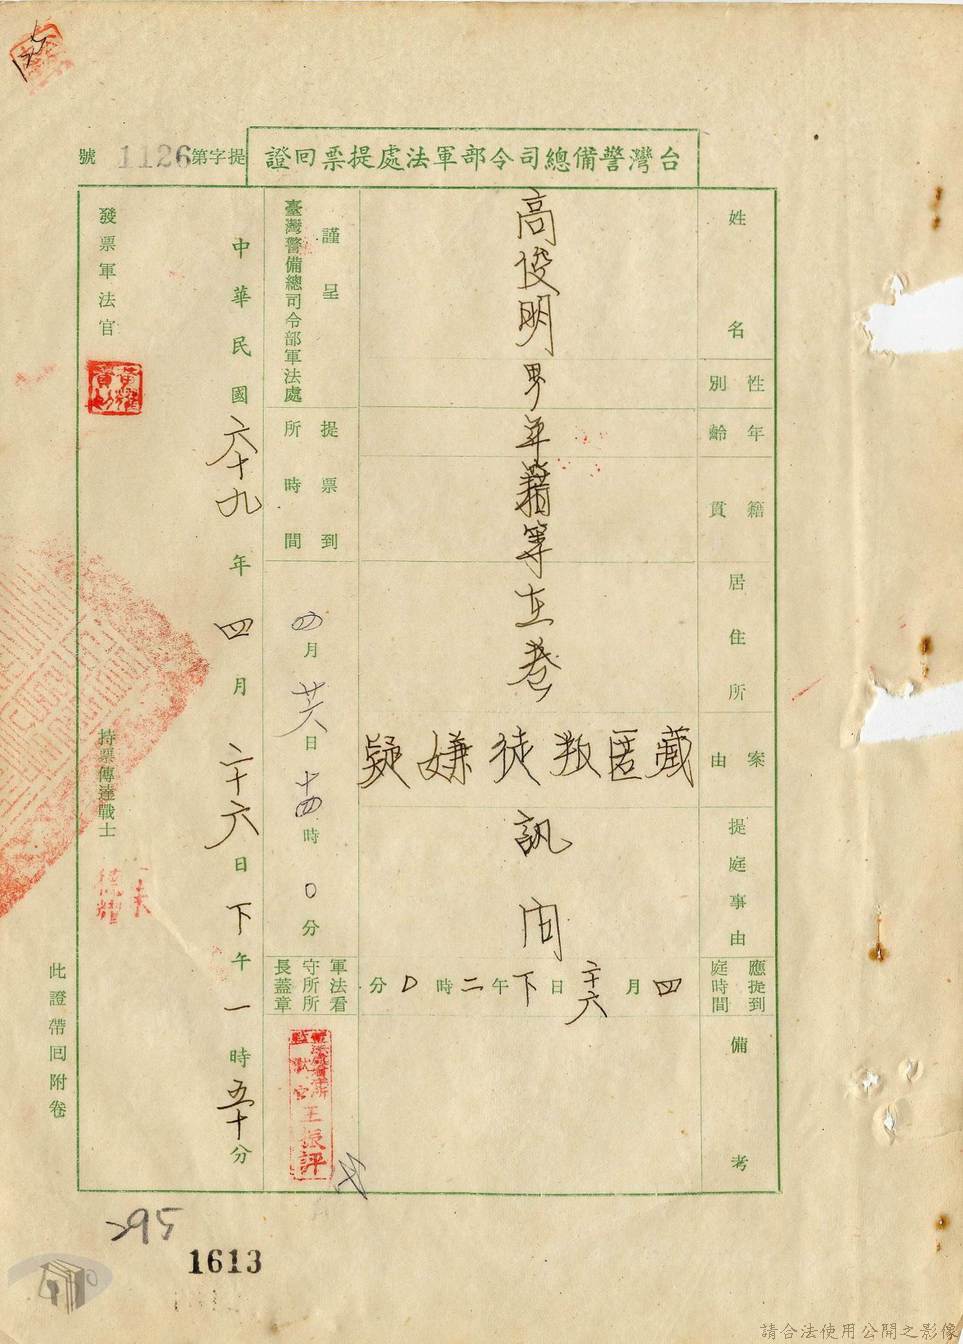 台灣警備總司令部軍法處提票回證
提字第1126號
姓名
高俊明
性別
男
年齡
籍貫
年籍等在卷
居住所
案由
藏匿叛徒嫌疑
提庭事由
訊問
應提到庭時間
四月二十六日下午二時0分
備考
謹呈
臺灣警備總司令部軍法處
提票到所時間
四月廿六日十四時0分
軍法看守所所長蓋章
王振評
中華民國六十九年四月二十六日下午一時五十分
發票軍法官
持票傳達戰士
此證帶回附卷
295
1613
請合法使用公開之影像